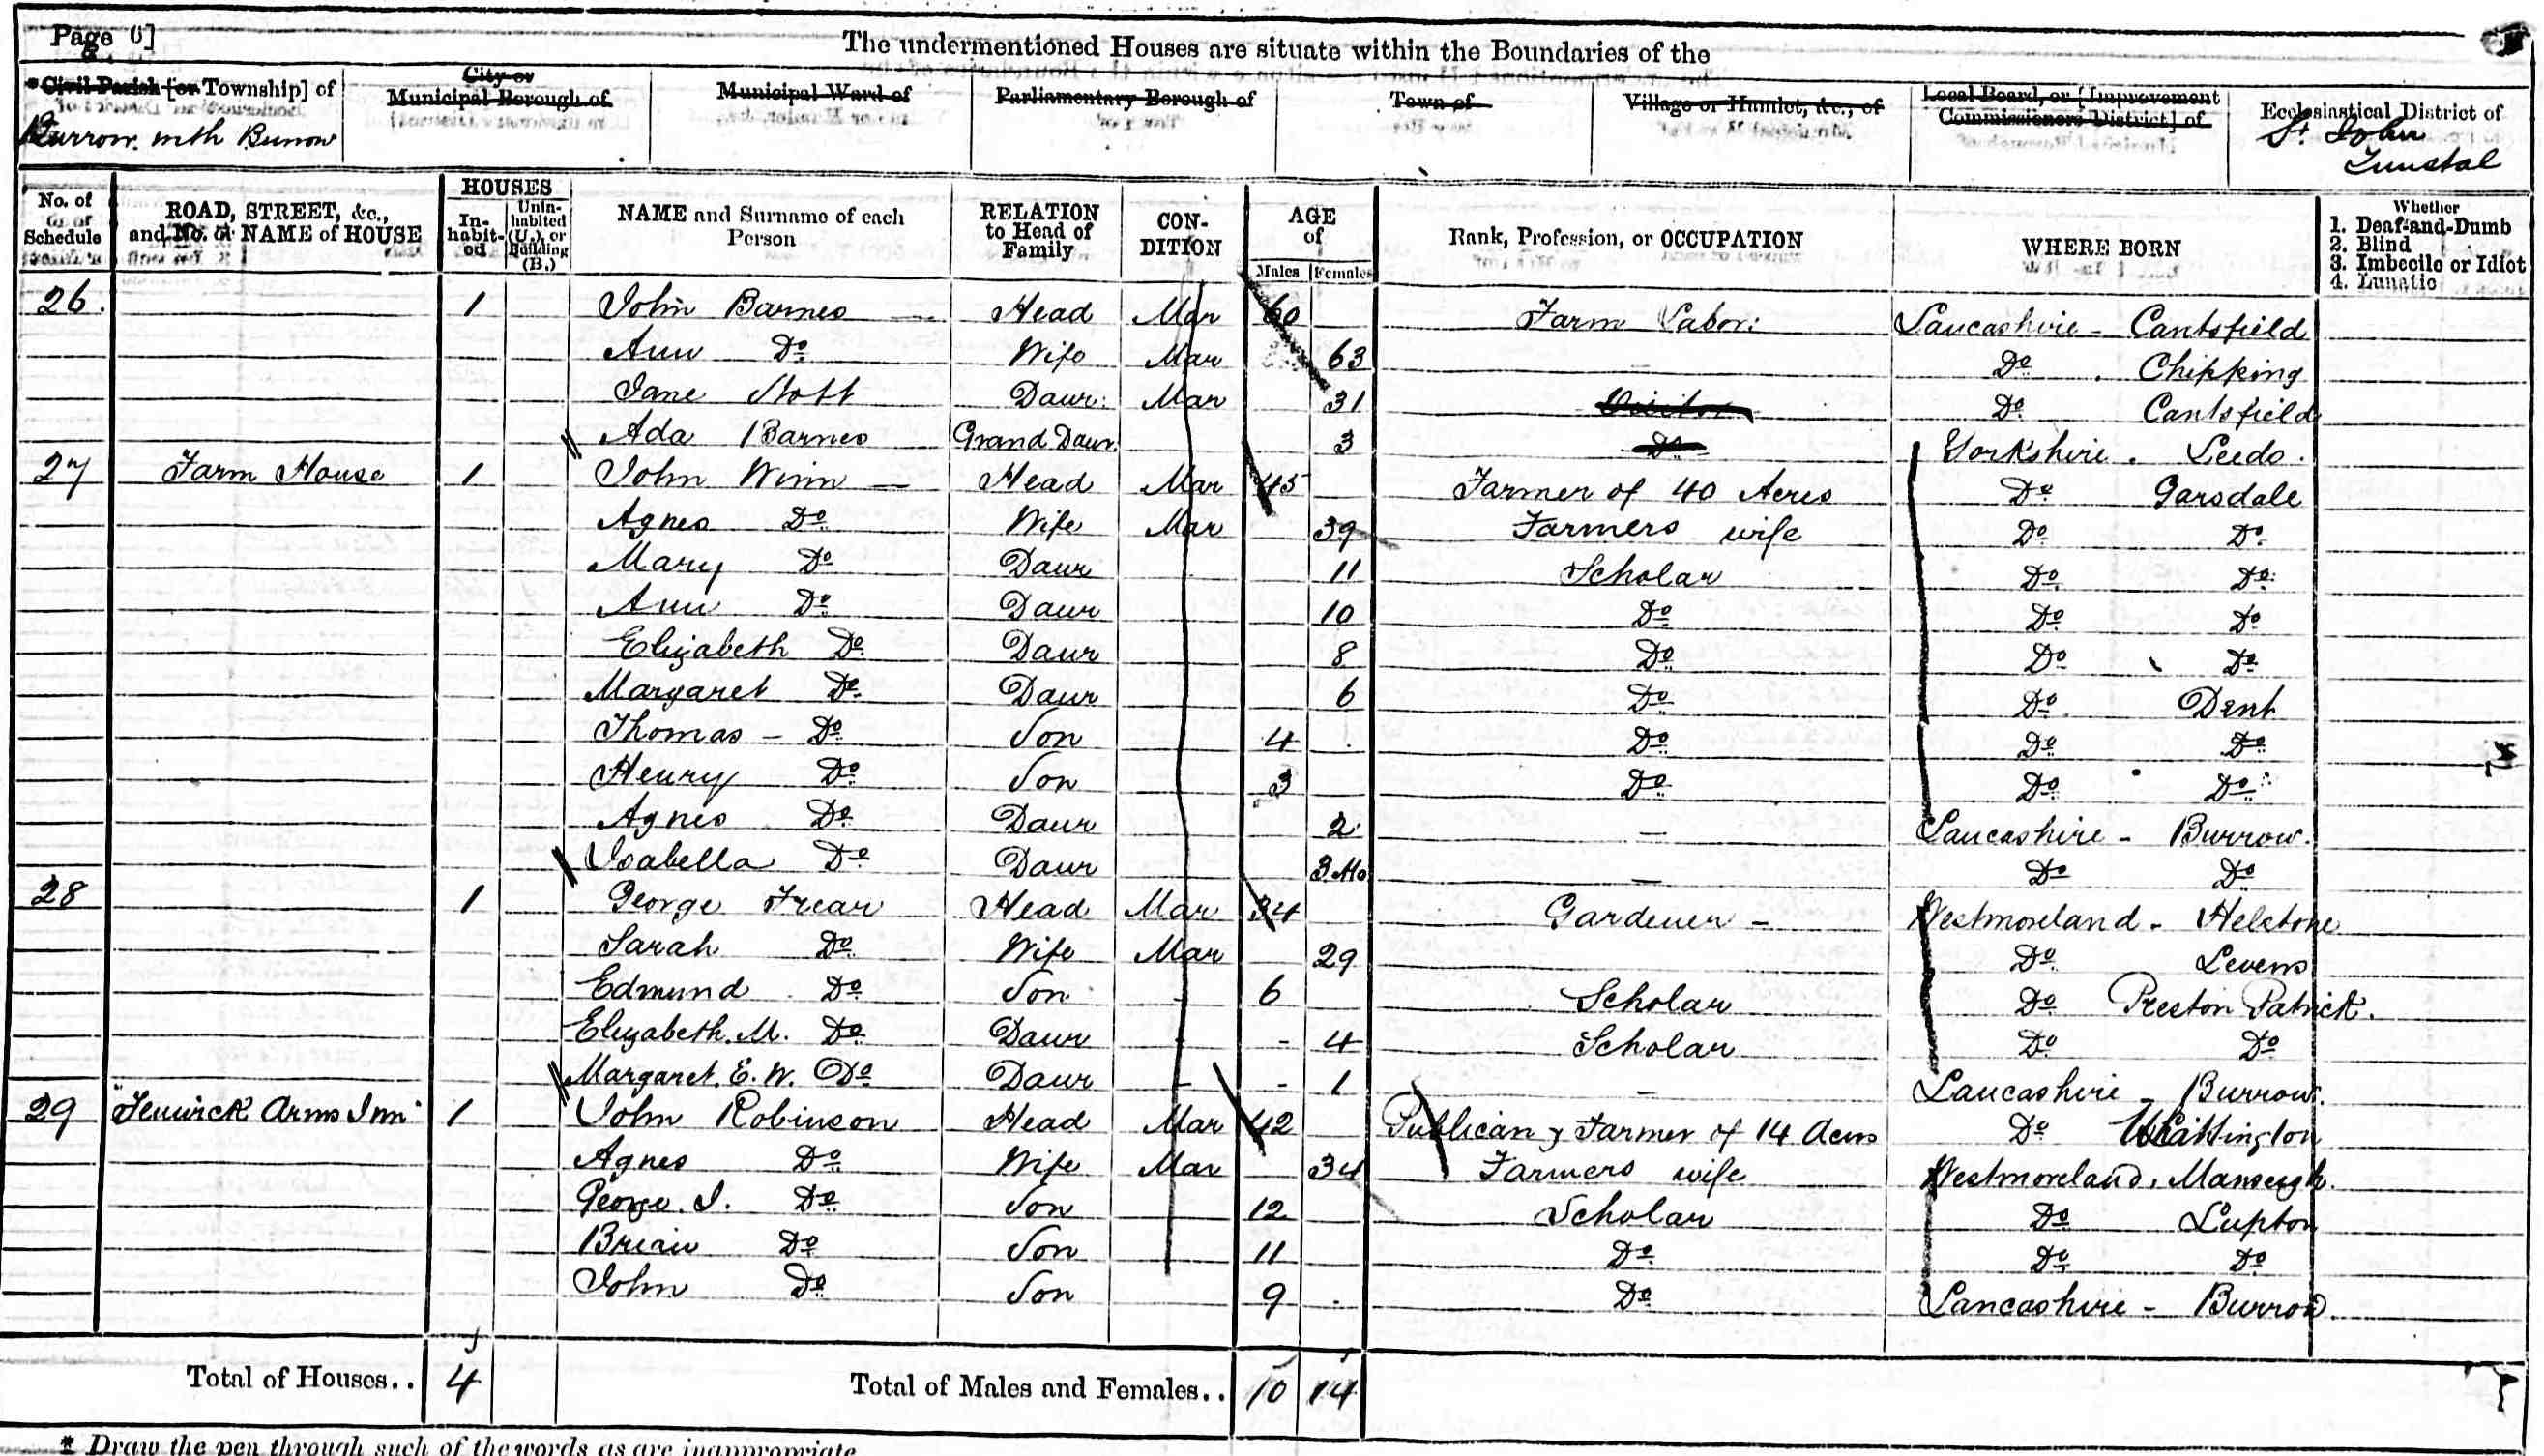 Page 6]
The undermentioned Houses are situate within the Boundaries of the
*Civil Parish [or Township] of
City or Municipal Borough of
Municipal Ward of
Parliamentary Borough of
Town of
Village or Hamlet, &c., of
Local Board, or [Improvement Commissioners District] of
Ecclesiastical District of
Burrow with Burrow
St. John Tunstal
No. of Schedule
ROAD, STREET, &c., and No. or NAME of HOUSE
HOUSES
Inhabited
Uninhabited (U.), or Building (B.)
NAME and Surname of each Person
RELATION to Head of Family
CONDITION
AGE of
Males
Females
Rank, Profession, or OCCUPATION
WHERE BORN
Whether
1. Deaf-and-Dumb
2. Blind
3. Imbecile or Idiot
4. Lunatic
26. 1 John Barnes Head Mar 60 Farm Labor: Lancashire - Cantsfield
Ann Do Wife Mar 63 - Do . Chipping
Jane Stott Daur: Mar 31 Visitor Do Cantsfield
Ada Barnes Grand Daur. 3 Do Yorkshire . Leeds.
27 Farm House 1 John Winn Head Mar 45 Farmer of 40 Acres Do Garsdale
Agnes Do Wife Mar 39 Farmers wife Do Do
Mary Do Daur 11 Scholar Do Do
Ann Do Daur 10 Do Do Do
Elizabeth Do Daur 8 Do Do Do
Margaret Do Daur 6 Do Do Dent
Thomas - Do Son 4 Do Do Do
Henry Do Son 3 Do Do Do
Agnes Do Daur 2 - Lancashire - Burrow.
Isabella Do Daur 3 Mo - Do Do
28 1 George Frear Head Mar 34 Gardener - Westmoreland - Helstone
Sarah Do Wife Mar 29 Do Levens
Edmund Do Son - 6 Scholar Do Preston Patrick.
Elizabeth. M. Do Daur - - 4 Scholar Do Do
Margaret. E. W. Do Daur - - 1 - Lancashire - Burrow.
29 "Fenwick Arms Inn" 1 John Robinson Head Mar 42 Publican & Farmer of 14 Acres Do Whittington
Agnes Do Wife Mar 34 Farmers wife Westmoreland, Mansergh.
George. I. Do Son 12 Scholar Do Lupton
Brian Do Son 11 Do Do Do
John Do Son 9 Do Lancashire - Burrow.
Total of Houses.. 4 Total of Males and Females.. 10 14
* Draw the pen through such of the words as are inappropriate